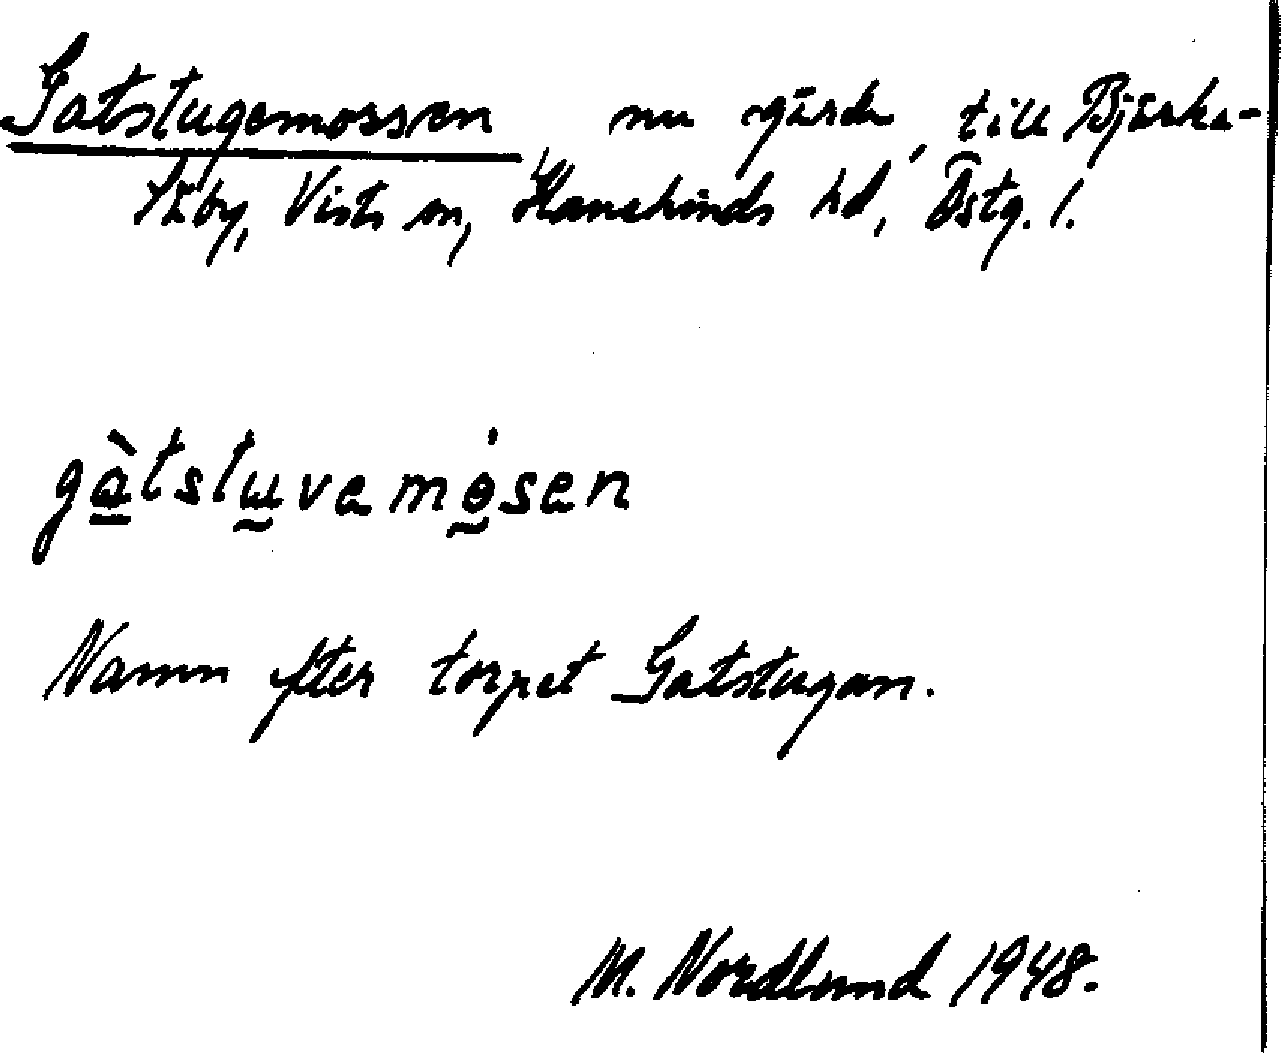 Gatstugemossen, nu gärde, till Bjärka-
Säby, Vists sn, Hanekinds hd, Östg. l.
gàtstuvamósen
Namn efter torpet Gatstugan.
M. Nordlund 1948.